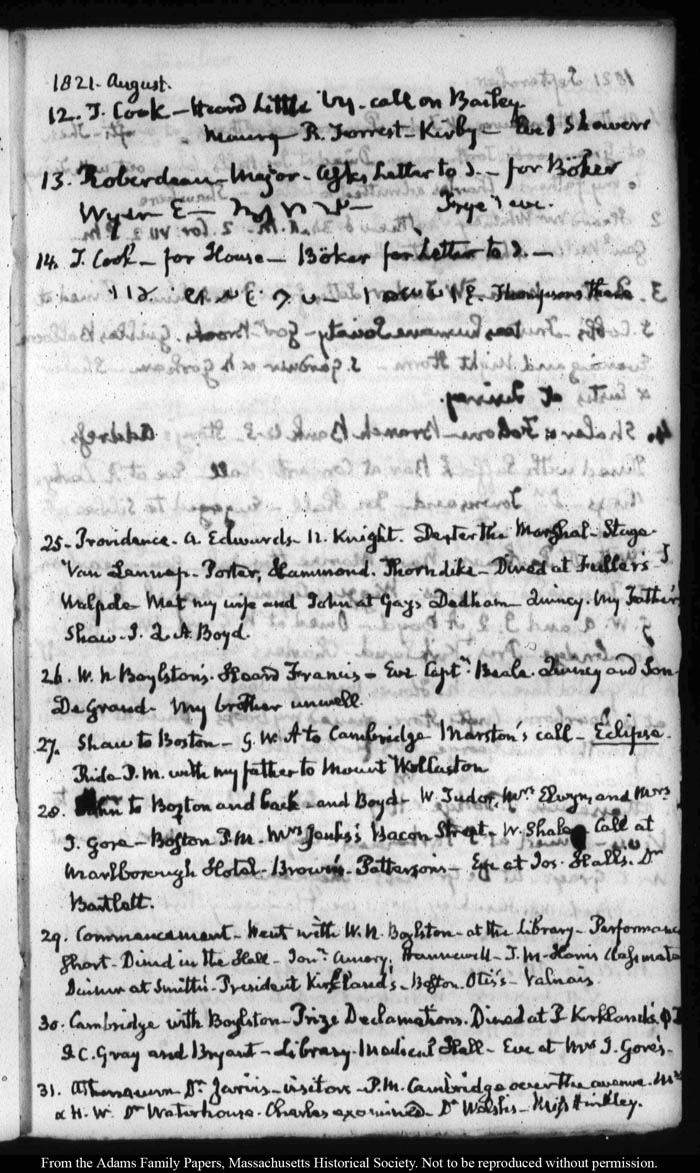 1821. August.
12. T. Cook – Heard Little Wy. call on Bailey
Maury – R. Forrest – Kirby – Eve Showers
13. Roberdeau – Major – Letter to I. – for Böker
Wyer E – Frye's eve.
14. T. Cook – for House – Böker for Letter to I. –
Thompsons
25. Providence. A. Edwards – N. Knight. Dexter the Marshal – Stage.
Van Lennep – Porter, Hammond. Thorndike – Dined at Fuller's
Walpole – Met my wife and John at Gays Dedham – Quincy. My Father
Shaw – I. Q A Boyd.
26. W. N Boylston's. Heard Francis – Eve Captn. Beale. Quincy and Son
De Grand – My brother unwell.
27. Shaw to Boston – G. W. A to Cambridge Marston's call – Eclipse.
Ride P.M. with my father to Mount Wollaston
28. John to Boston and back – and Boyd – W. Tudor, Mrs Elwyn, and Mrs
I. Gore – Boston P.M. Mrs Jenks's Bacon Street – W. Shaler Call at
Marlborough Hotel – Brown's – Patterson's – Eve at Jos. Halls. Dr
Bartlett.
29. Commencement – Went with W. N. Boylston – at the Library – Performance
short – Dined in the Hall – Jonn. Amory, Hunnewell – T. M. Harris Classmate
Dinner at Smith's – President Kirkland's – Boston. Otis's – Valnais.
30. Cambridge with Boylston – Prize Declamations. Dined at P. Kirkland's Φ
I C. Gray and Bryant – Library – Medical Hall – Eve at Mrs I. Gore's –
31. Athenaeum Dr Jarvis – visitors – P.M. Cambridge over the avenue. Mrs
& H. W. Dr Waterhouse. Charles examined – Dr Walsh's – Miss Hinkley.
From the Adams Family Papers, Massachusetts Historical Society. Not to be reproduced without permission.